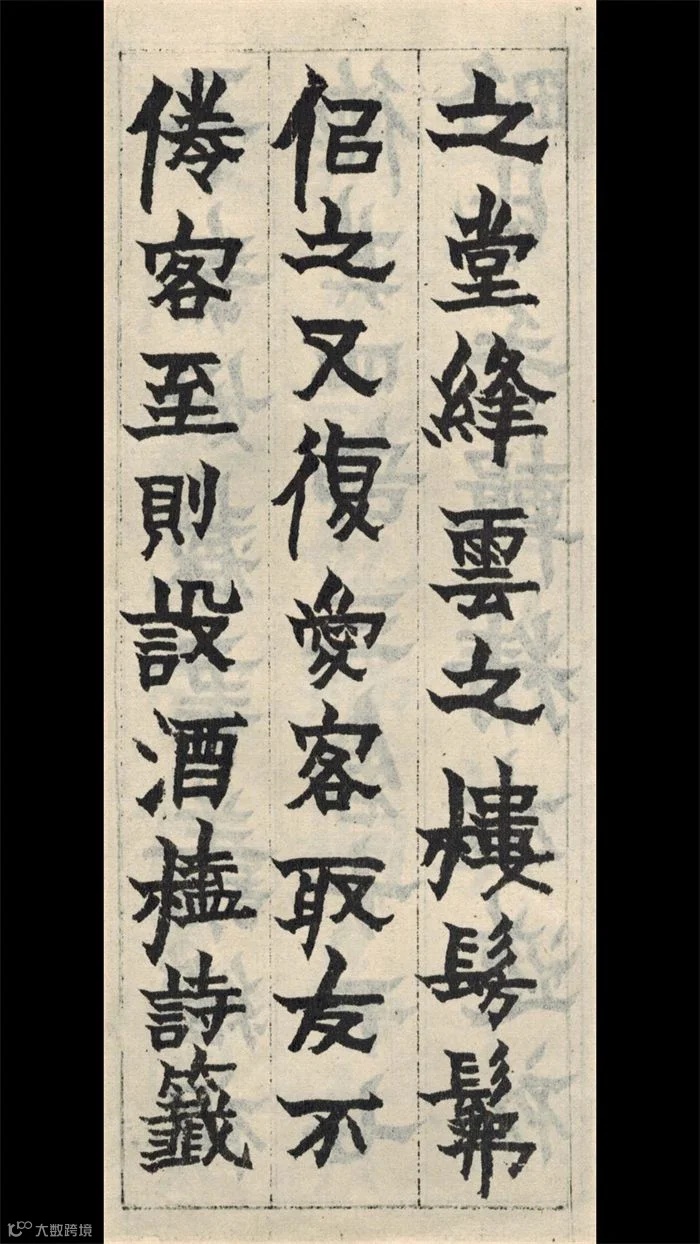 之堂絳雲之樓髣髴
侣之又復愛客取友不
倦客至則設酒榼詩籤
大数跨境